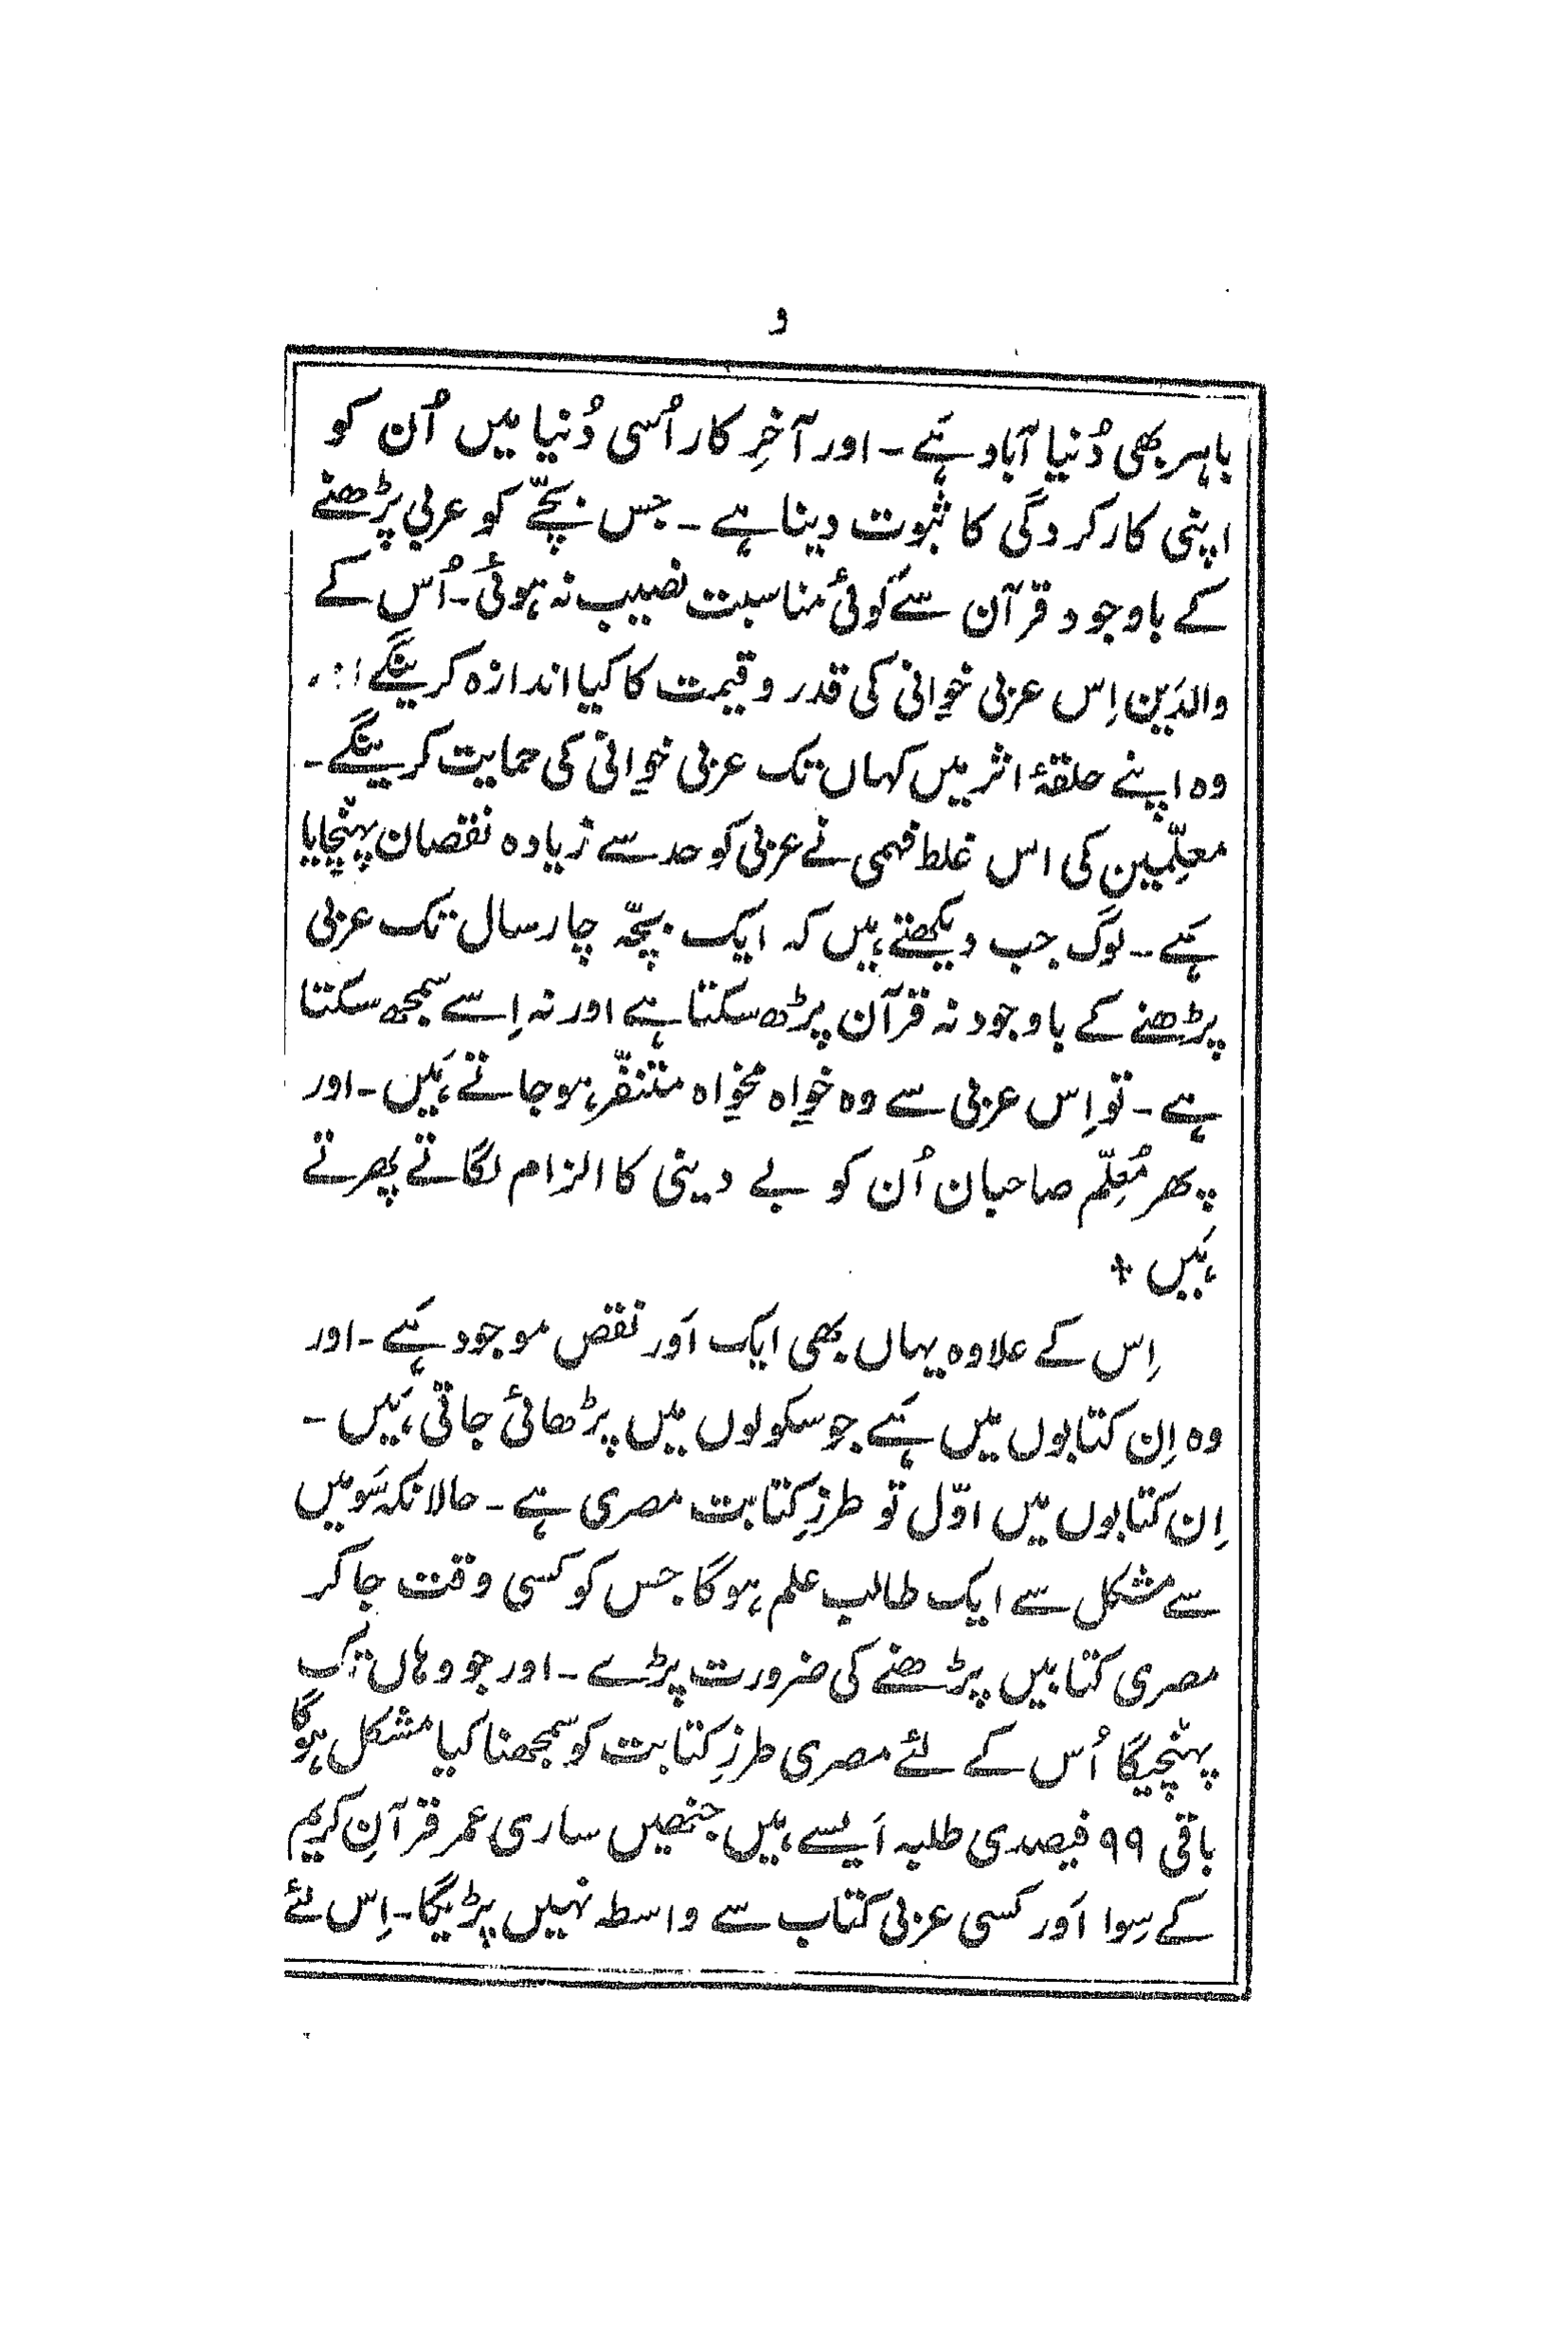 و
باہر بھی دُنیا آباد ہَے ۔ اور آخِر کار اُسی دُنیا میں اُن کو
اپنی کارکردگی کا ثبوت دینا ہے ۔ جس بچّے کو عربی پڑھنے
کے باوجود قرآن سے کوئی مناسبت نصیب نہ ہوئی ۔ اُس کے
والدَین اِس عربی خوانی کی قدر و قیمت کا کیا اندازہ کرینگے
وہ اپنے حلقۂ اثر میں کہاں تک عربی خوانی کی حمایت کرینگے ۔
معلِّمین کی اس غلط فہمی نے عربی کو حد سے زیادہ نقصان پہنچایا
ہَے ۔ لوگ جب دیکھتے ہیں کہ ایک بچّہ چار سال تک عربی
پڑھنے کے باوجود نہ قرآن پڑھ سکتا ہے اور نہ اِسے سمجھ سکتا
ہے ۔ تو اِس عربی سے وہ خواہ مخواہ متنفّر ہو جاتے ہَیں ۔ اور
پھر مُعلِّم صاحبان اُن کو بے دینی کا الزام لگاتے پھرتے
ہَیں +
اِس کے علاوہ یہاں بھی ایک اَور نقص موجود ہَے ۔ اور
وہ اِن کتابوں میں ہَے جو سکولوں میں پڑھائی جاتی ہَیں ۔
اِن کتابوں میں اوّل تو طرزِ کتابت مصری ہے ۔ حالانکہ سَو میں
سے مشکل سے ایک طالب علم ہو گا جس کو کسی وقت جا کر
مصری کتابیں پڑھنے کی ضرورت پڑے ۔ اور جو وہاں تک
پہنچیگا اُس کے لئے مصری طرزِ کتابت کو سمجھنا کیا مشکل ہوگا
باقی ۹۹ فیصدی طلبہ اَیسے ہیں جنھیں ساری عمر قرآنِ کریم
کے سِوا اَور کسی عربی کتاب سے واسطہ نہیں پڑیگا ۔ اِس لئے